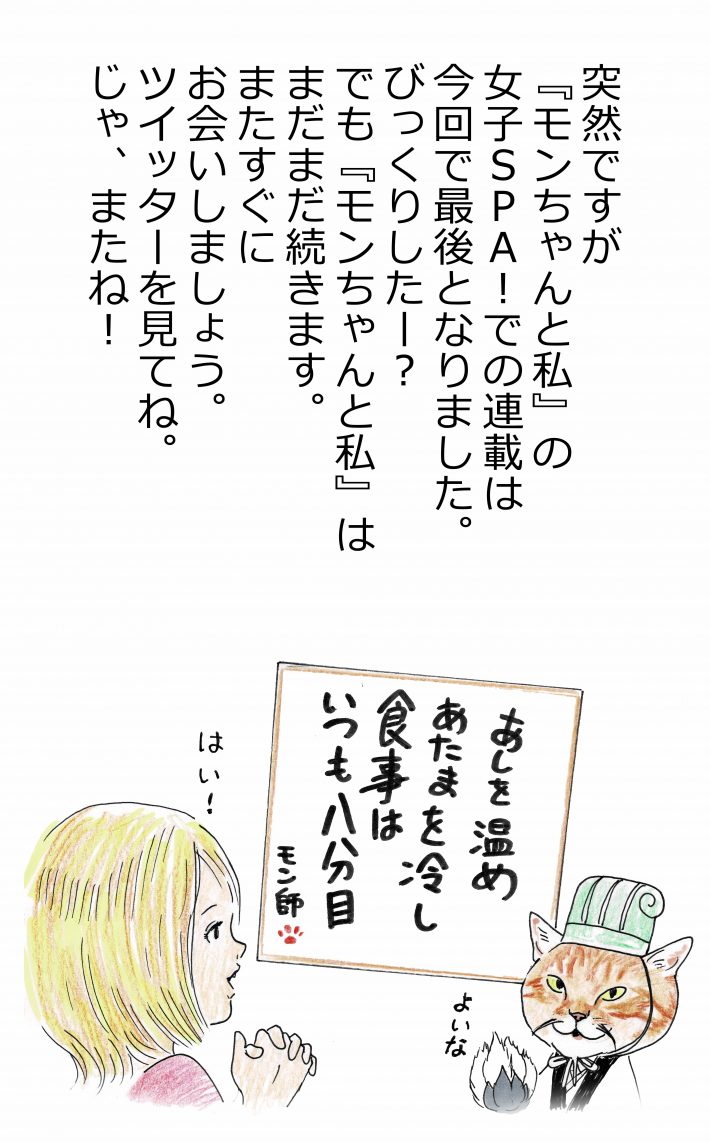 突然ですが
『モンちゃんと私』の
女子ＳＰＡ！での連載は
今回で最後となりました。
びっくりしたー？
でも『モンちゃんと私』は
まだまだ続きます。
またすぐに
お会いしましょう。
ツイッターを見てね。
じゃ、またね！
あしを温め
あたまを冷し
食事は
いつも八分目
モン師
はい！
よいな